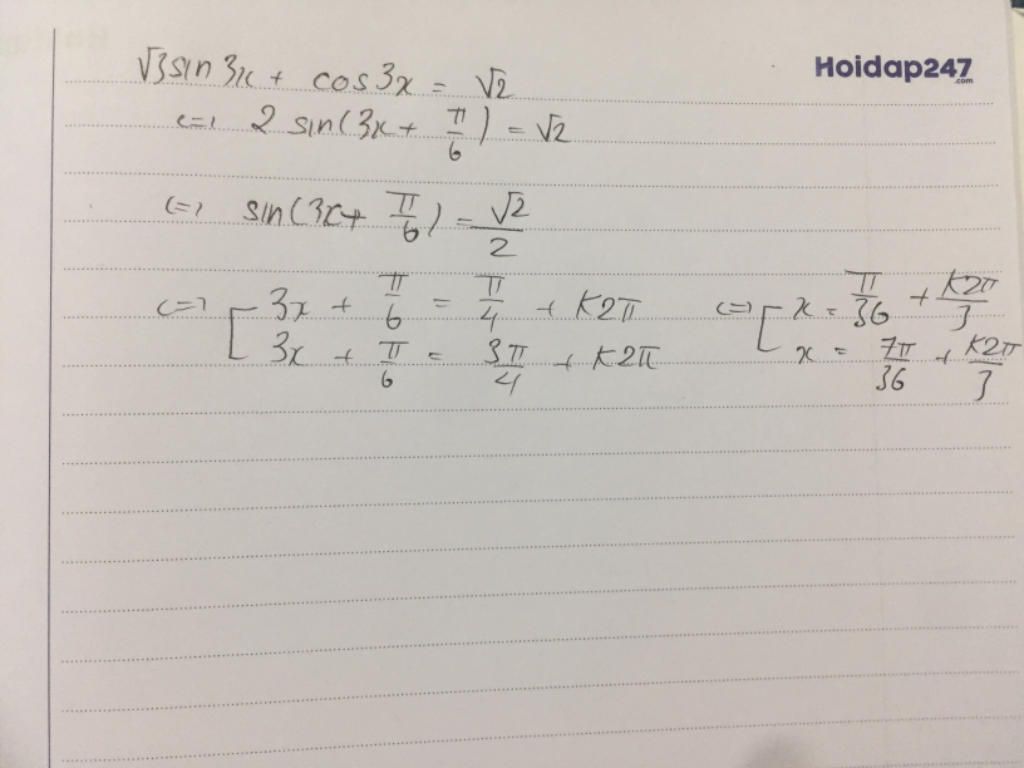 √3sin 3x + cos3x = √2
Hoidap247
.com
<=> 2 sin(3x + π/6) = √2
<=> sin(3x + π/6) = √2/2
<=> [ 3x + π/6 = π/4 + K2π <=> [ x = π/36 + K2π/3
3x + π/6 = 3π/4 + K2π x = 7π/36 + K2π/3